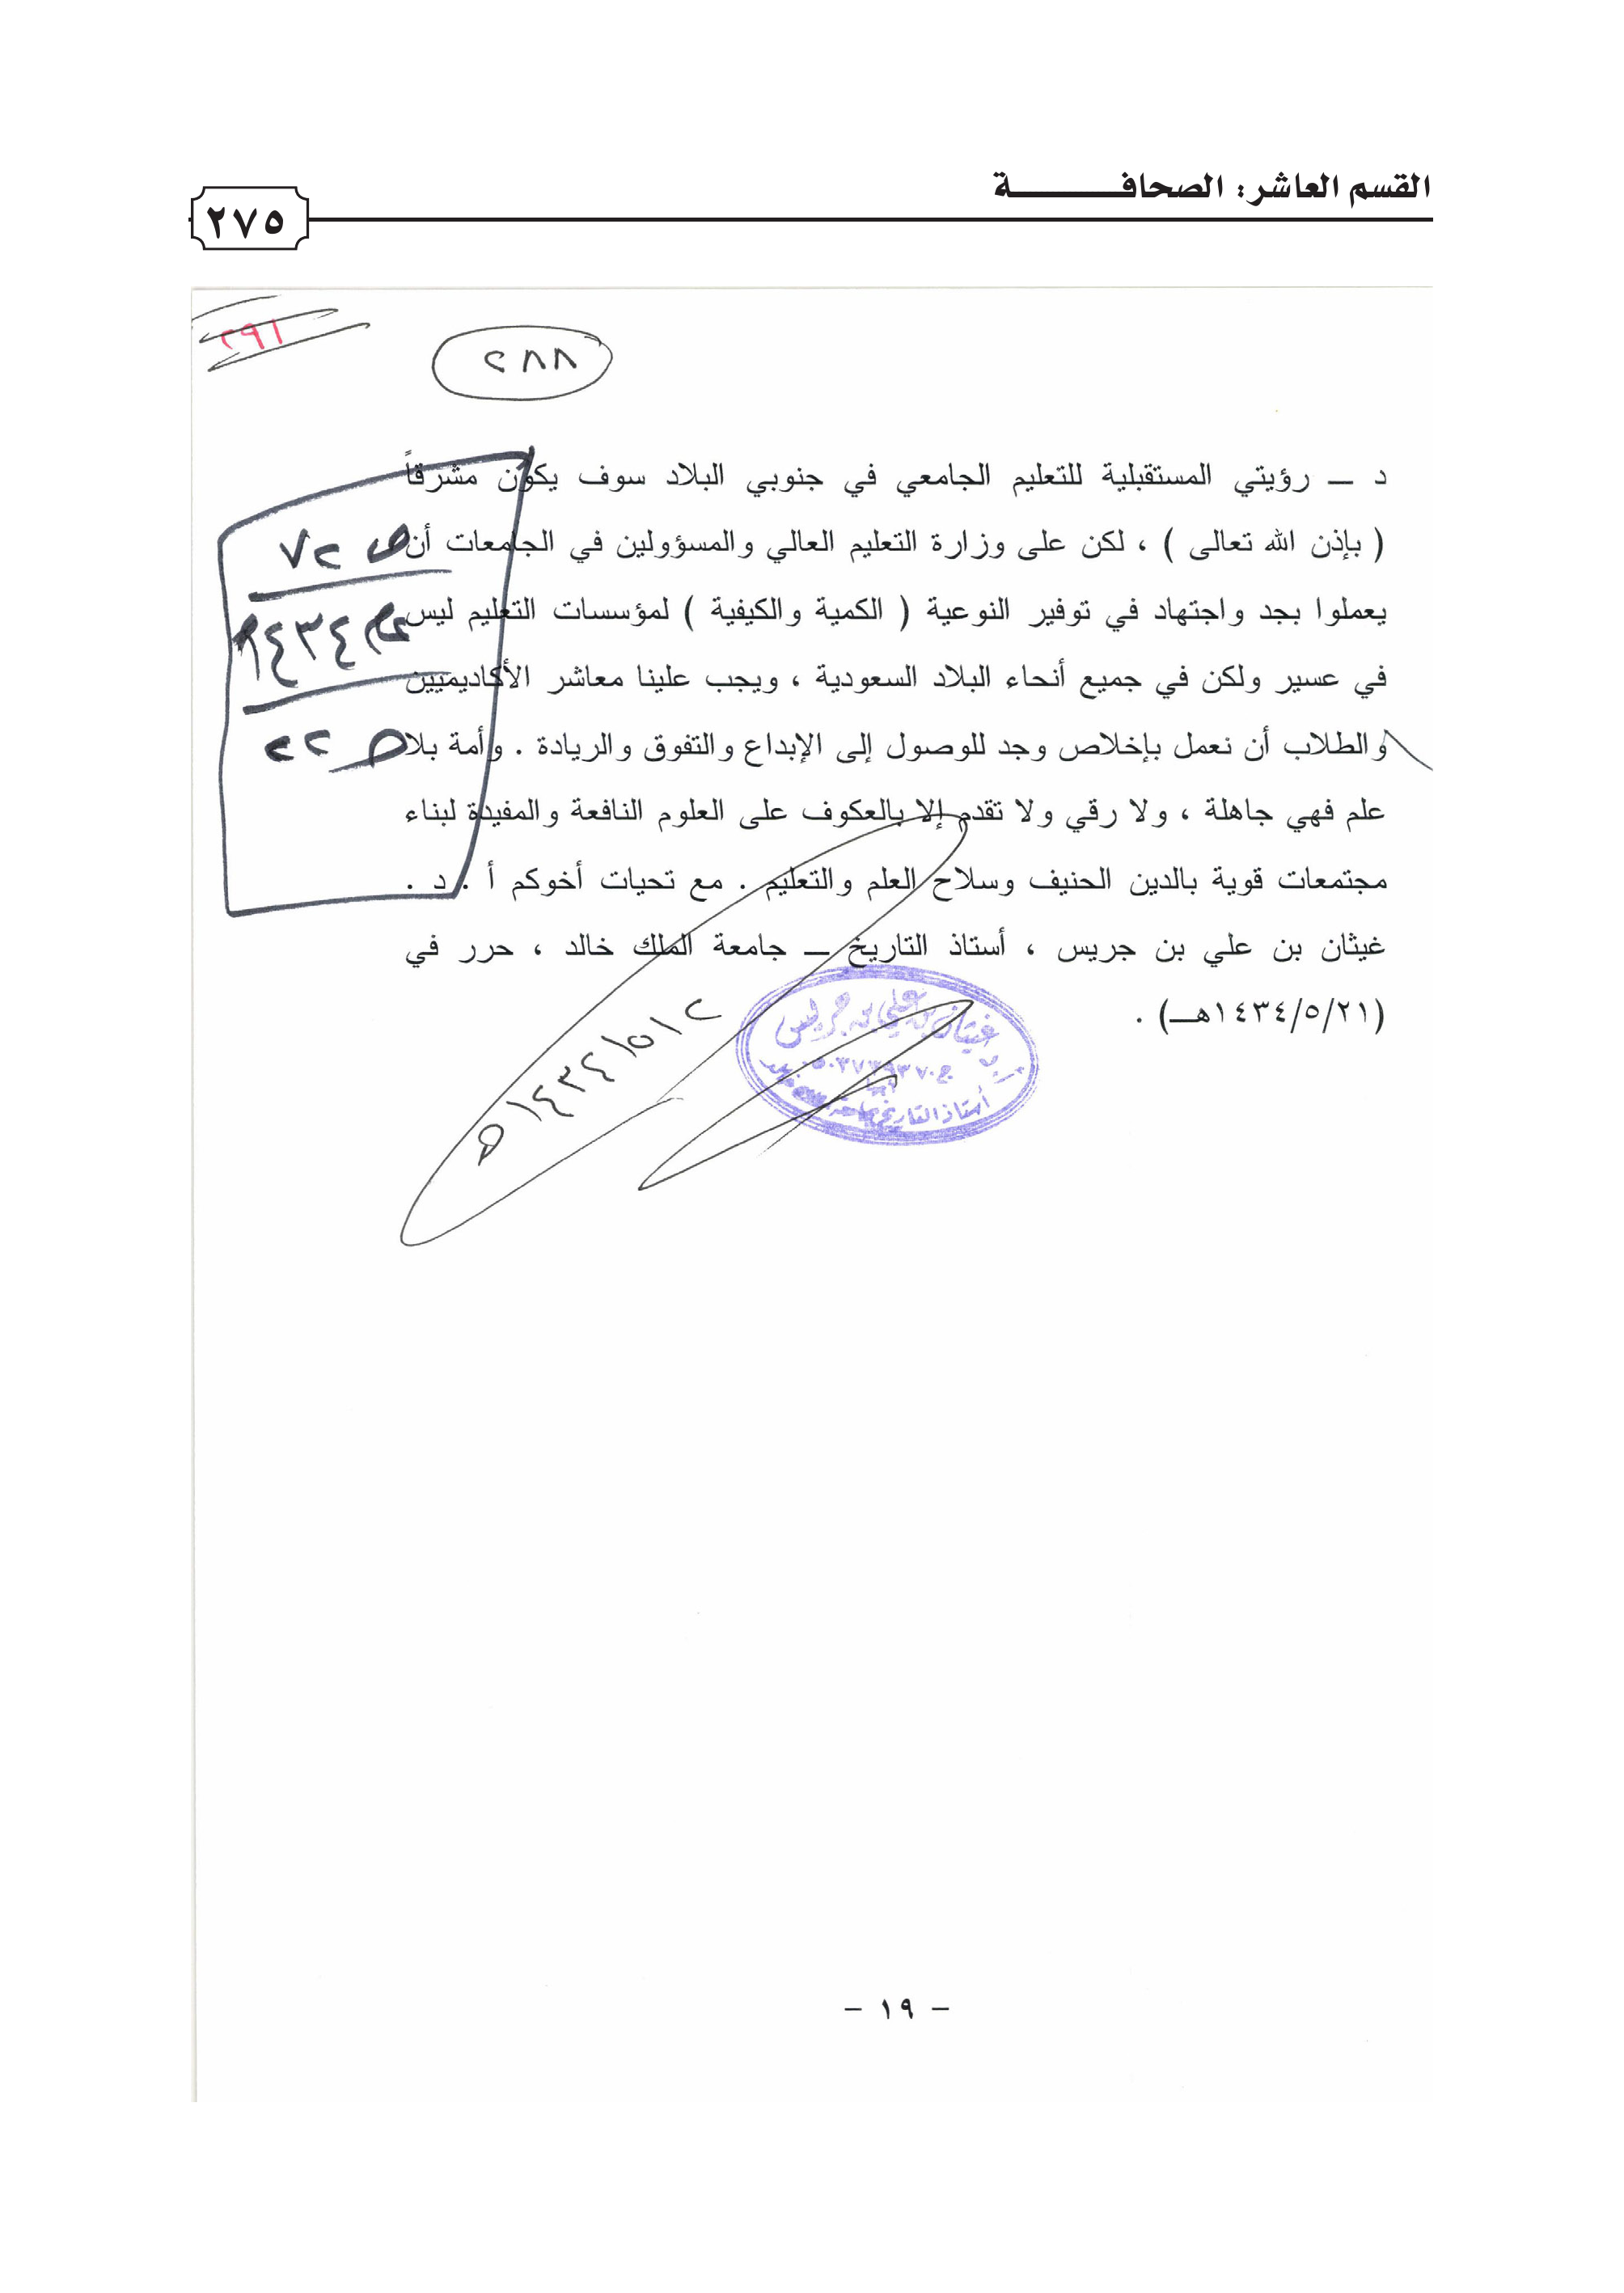 القسم العاشر: الصحافـــــــــــة
٢٧٥
٢٩١
٢٨٨
د ـــ رؤيتي المستقبلية للتعليم الجامعي في جنوبي البلاد سوف يكون مشرقاً
( بإذن الله تعالى ) ، لكن على وزارة التعليم العالي والمسؤولين في الجامعات أن
يعملوا بجد واجتهاد في توفير النوعية ( الكمية والكيفية ) لمؤسسات التعليم ليس
في عسير ولكن في جميع أنحاء البلاد السعودية ، ويجب علينا معاشر الأكاديميين
والطلاب أن نعمل بإخلاص وجد للوصول إلى الإبداع والتفوق والريادة . وأمة بلا
علم فهي جاهلة ، ولا رقي ولا تقدم إلا بالعكوف على العلوم النافعة والمفيدة لبناء
مجتمعات قوية بالدين الحنيف وسلاح العلم والتعليم . مع تحيات أخوكم أ . د .
غيثان بن علي بن جريس ، أستاذ التاريخ ـــ جامعة الملك خالد ، حرر في
(١٤٣٤/٥/٢١هـــ) .
ص ٧٢
١٤٣٤
ص ٢٢
١٤٣٤/٥/٢١ هـ
أ.د غيثان بن علي بن جريس
أستاذ التاريخ
- ١٩ -